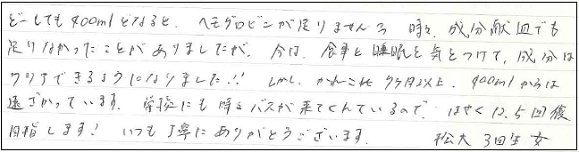 どーしても400mlとなると、ヘモグロビンが足りません３ 時々、成分献血でも
足りなかったことがありましたが、今は、食事と睡眠を気をつけて、成分は
クリアできるようになりました!! しかし、かれこれ 7ヶ月以上、400mlからは
遠ざかっています。学校にも時々バスが来てくれているので、はやく12.5回復
目指します! いつも丁寧にありがとうございます。 松大 3回生 女